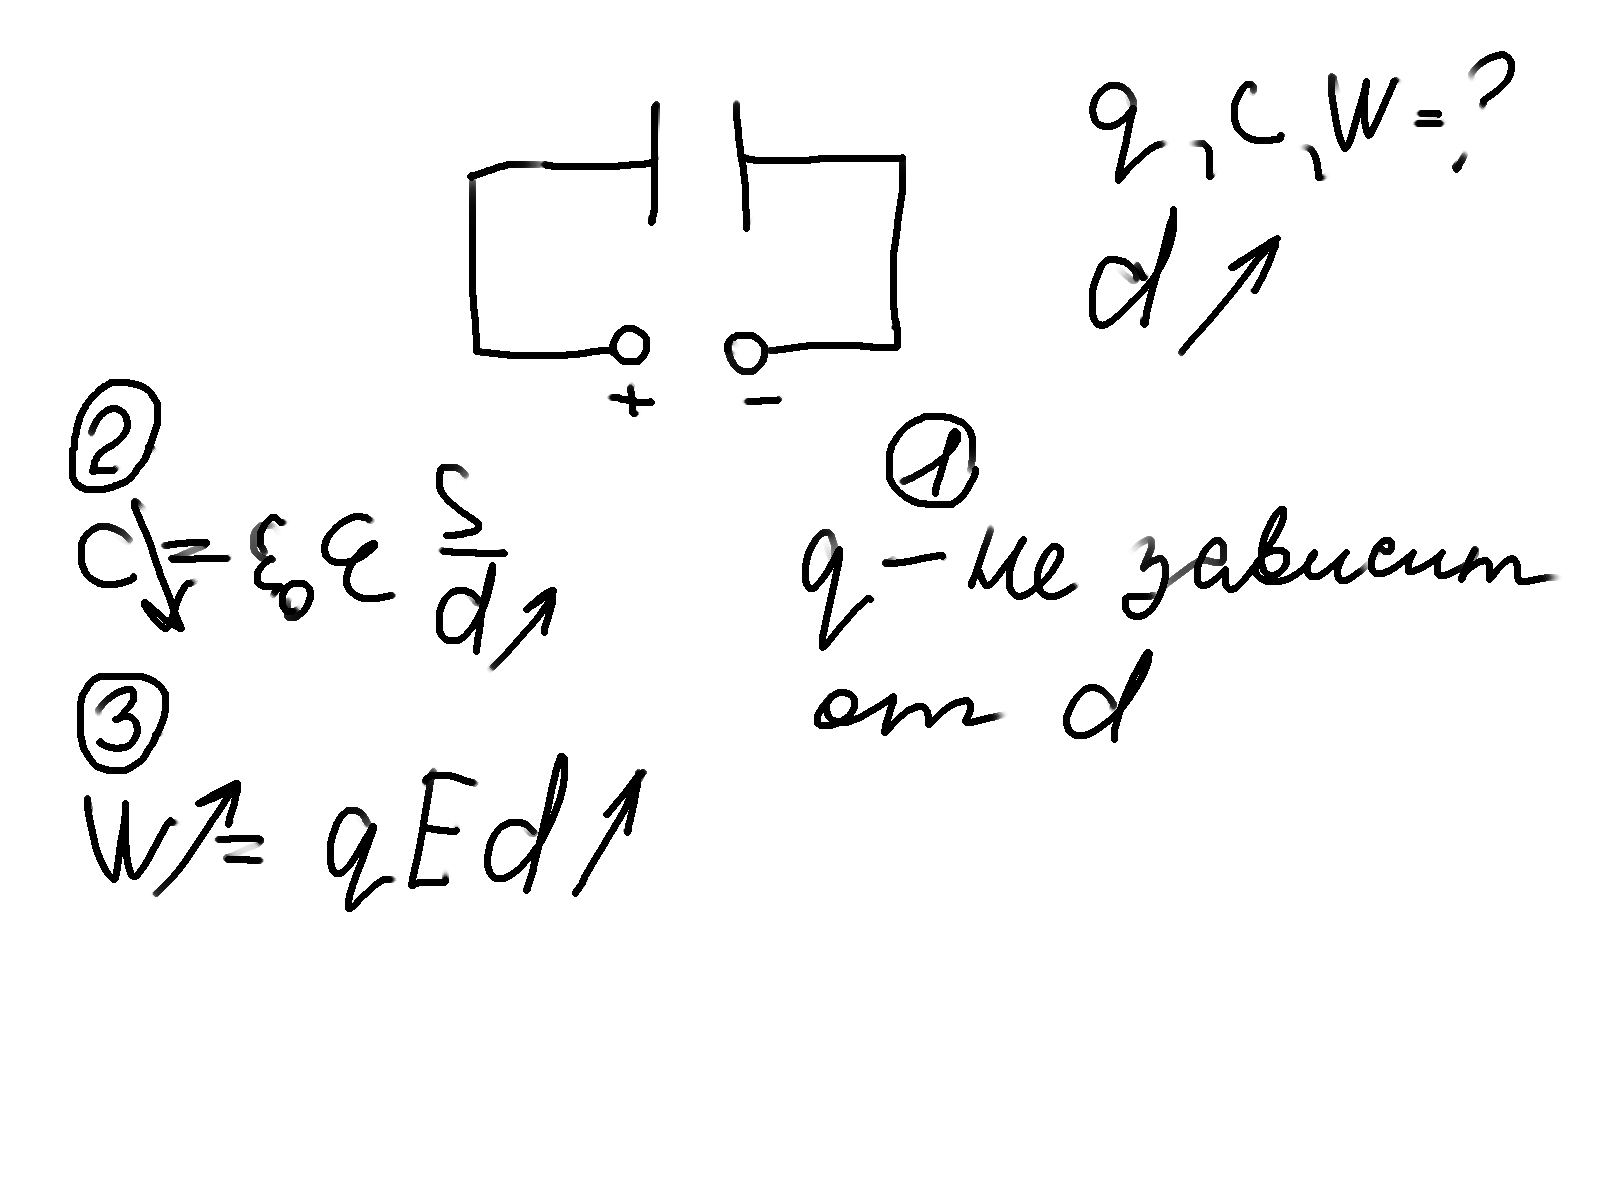 q, C, W = ?
d ↗
+ −
①
q – не зависит
от d
②
C↘ = ε₀ε S/d↗
③
W↗ = qEd↗